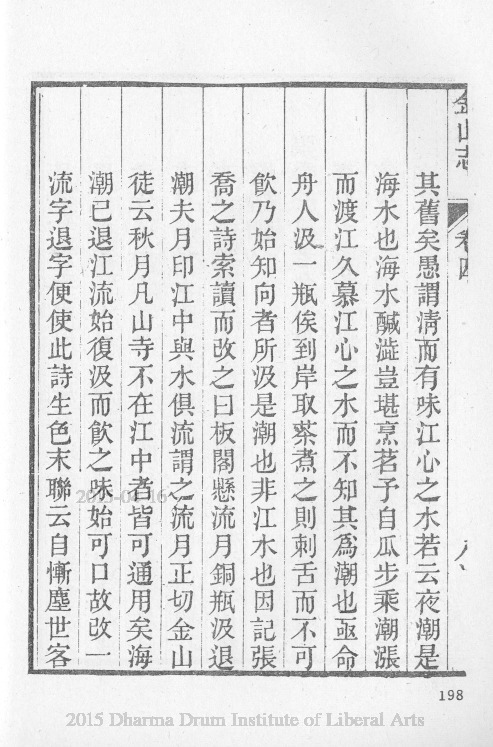 金山志 卷四 八
其舊矣愚謂淸而有味江心之水若云夜潮是
海水也海水鹹澁豈堪烹茗予自瓜步乘潮漲
而渡江久慕江心之水而不知其爲潮也亟命
舟人汲一瓶俟到岸取茶煮之則刺舌而不可
飮乃始知向者所汲是潮也非江水也因記張
喬之詩索讀而改之曰板閣懸流月銅瓶汲退
潮夫月印江中與水俱流謂之流月正切金山
徒云秋月凡山寺不在江中者皆可通用矣海
潮已退江流始復汲而飮之味始可口故改一
流字退字便使此詩生色末聯云自慚塵世客
198
2015-04-16
2015 Dharma Drum Institute of Liberal Arts